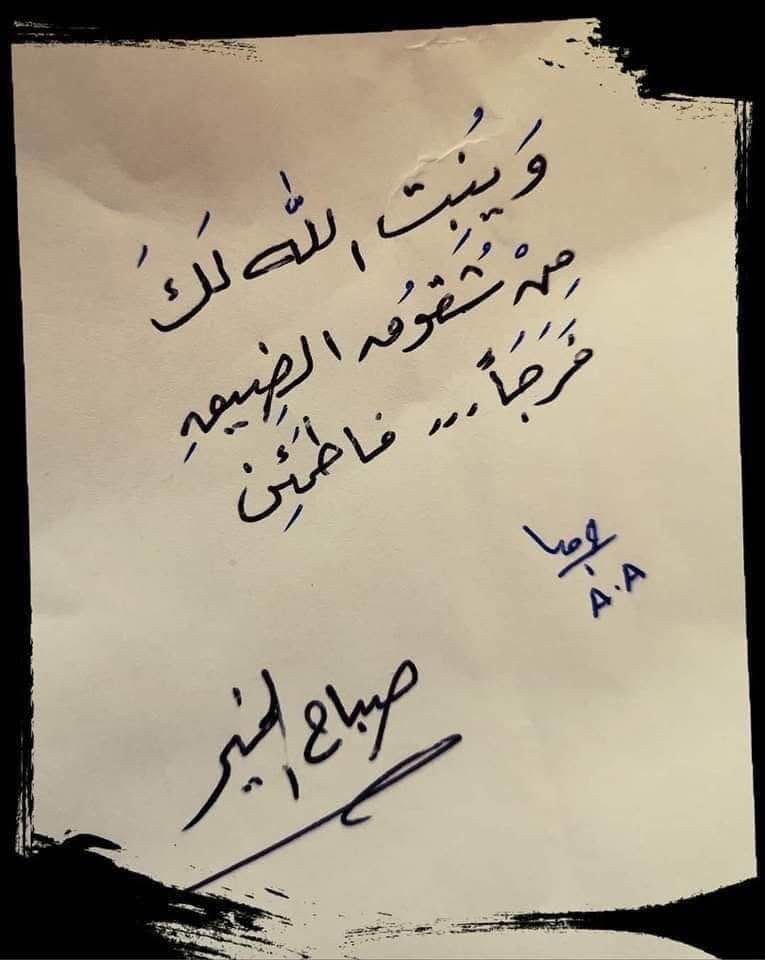 وَيُنبِت الله لَكَ
مِنْ شُقوُق الضِيق
فَرَجَاً... فاطمَئِن
A.A
صباح الخير